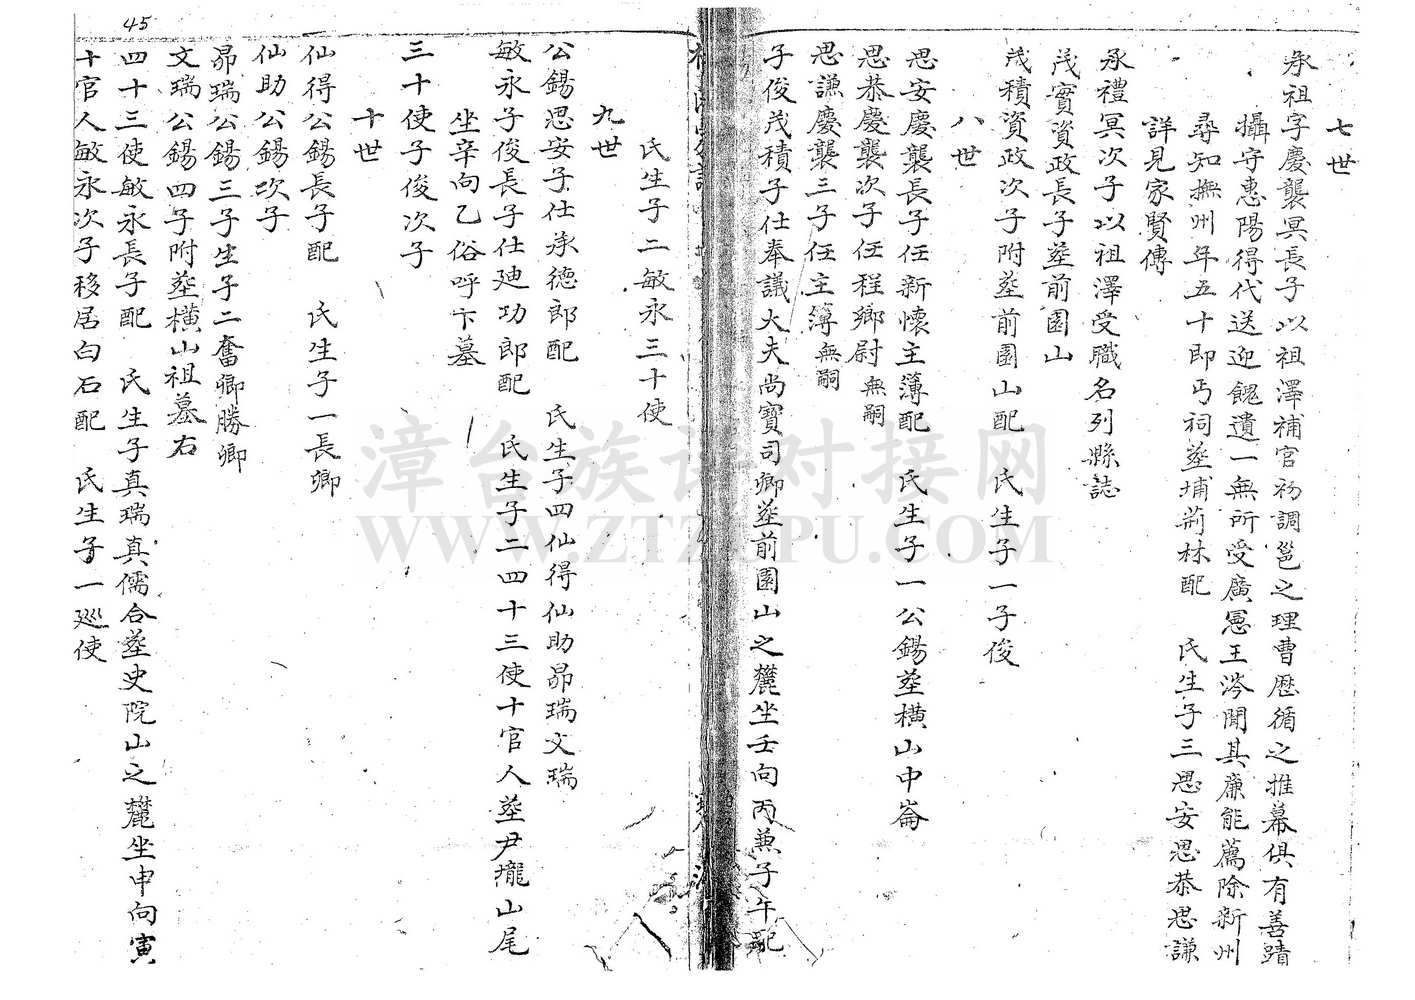 七世
承祖字慶襲冥長子以祖澤補官初調邕之理曹歷循之推幕俱有善蹟
攝守惠陽得代送迎餽遺一無所受廣憲王涔聞其廉能薦除新州
尋知撫州年五十即丐祠塟埔荊林配　氏生子三思安思恭思謙
詳見家賢傳
承禮冥次子以祖澤受職名列縣誌
茂實資政長子塟前園山
茂積資政次子附塟前園山配　氏生子一子俊
八世
思安慶襲長子任新懷主簿配　氏生子一公錫塟橫山中崙
思恭慶襲次子任程鄉尉無嗣
思謙慶襲三子任主簿無嗣
子俊茂積子仕奉議大夫尚寶司卿塟前園山之麓坐壬向丙兼子午配
氏生子二敏永三十使
九世
公錫思安子仕承德郎配　氏生子四仙得仙助昴瑞文瑞
敏永子俊長子仕廸功郎配　氏生子二四十三使十官人塟尹攏山尾
坐辛向乙俗呼卞墓
三十使子俊次子
十世
仙得公錫長子配　氏生子一長卿
仙助公錫次子
昴瑞公錫三子生子二奮卿勝卿
文瑞公錫四子附塟橫山祖墓右
四十三使敏永長子配　氏生子真瑞真儒合塟史院山之麓坐申向寅
十官人敏永次子移居白石配　氏生子一巡使
45
漳台族谱对接网
WWW.ZTZUPU.COM